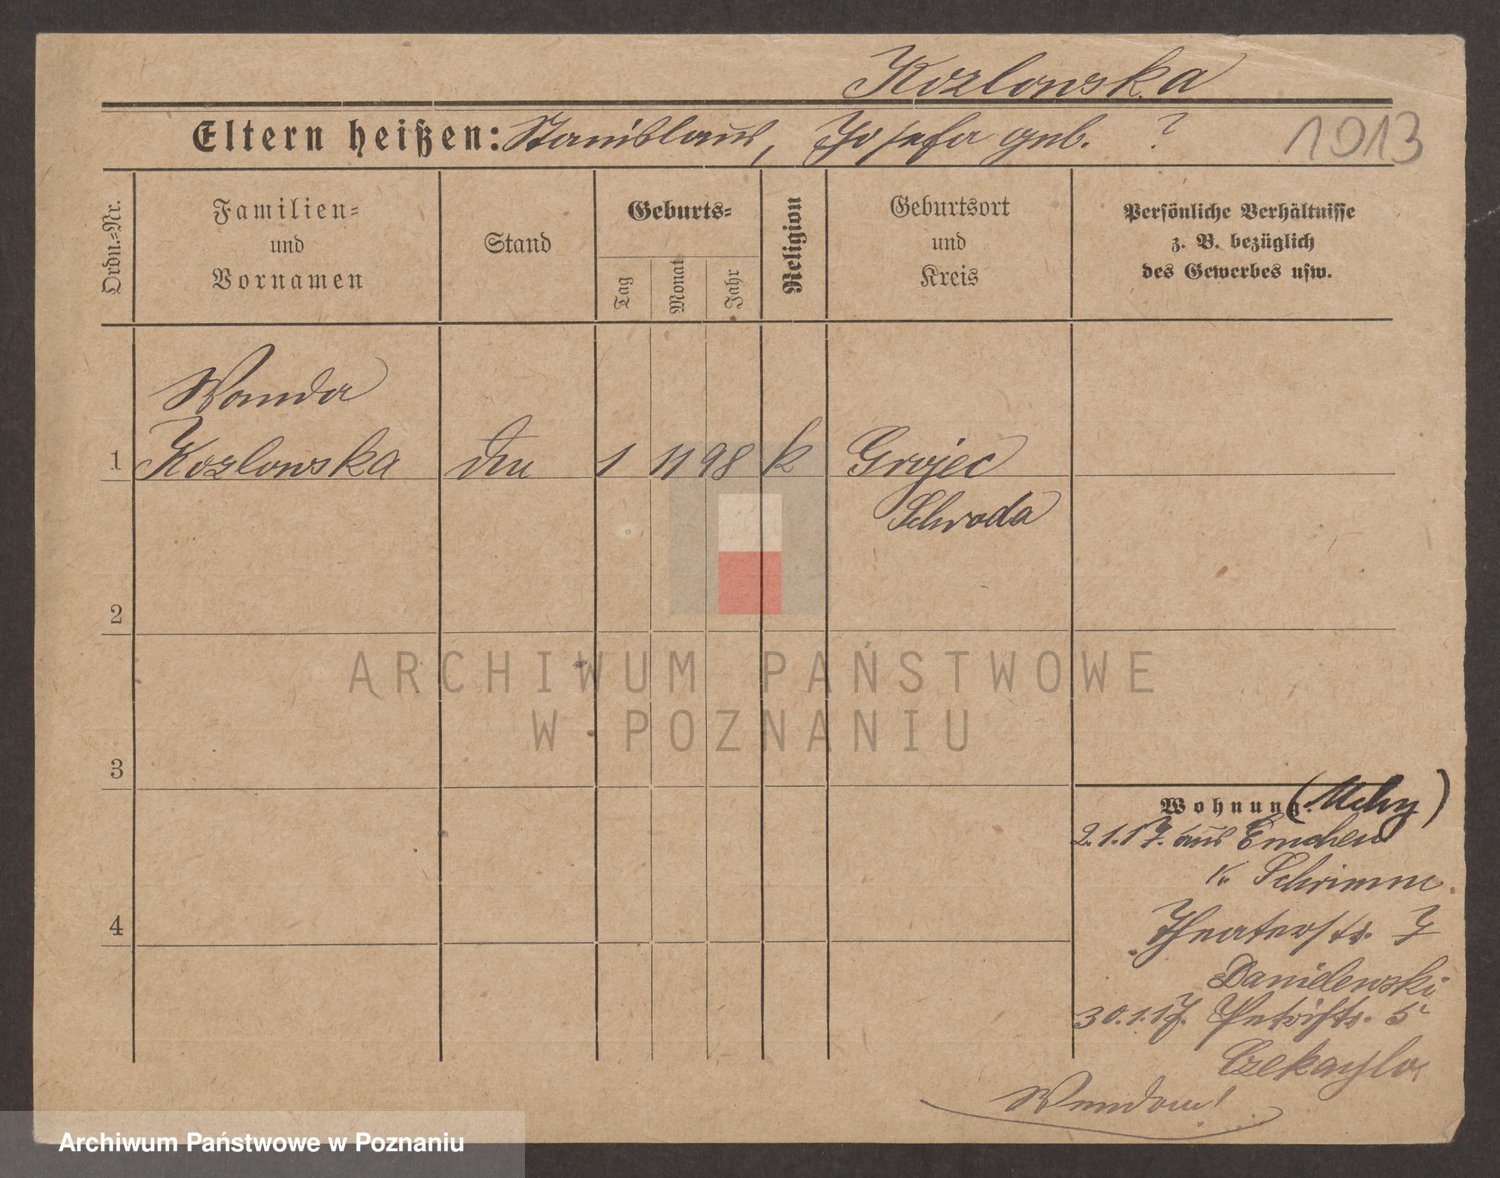 Kozlowska
Eltern heißen: Stanislaus, Josefa geb. ?
1913
Ordn.=Nr.
Familien=
und
Vornamen
Stand
Geburts=
Tag
Monat
Jahr
Religion
Geburtsort
und
Kreis
Persönliche Verhältnisse
z. B. bezüglich
des Gewerbes usw.
Wanda
1 Kozlowska 1 11 98 k Grojec
Schroda
2
3
4
Wohnung. (Mchy)
2.1.17. aus Emchen
Kr. Schrimm
Theaterstr. 7
Danielewski
30.1.17. Petristr. 5
ARCHIWUM PAŃSTWOWE
W POZNANIU
Archiwum Państwowe w Poznaniu